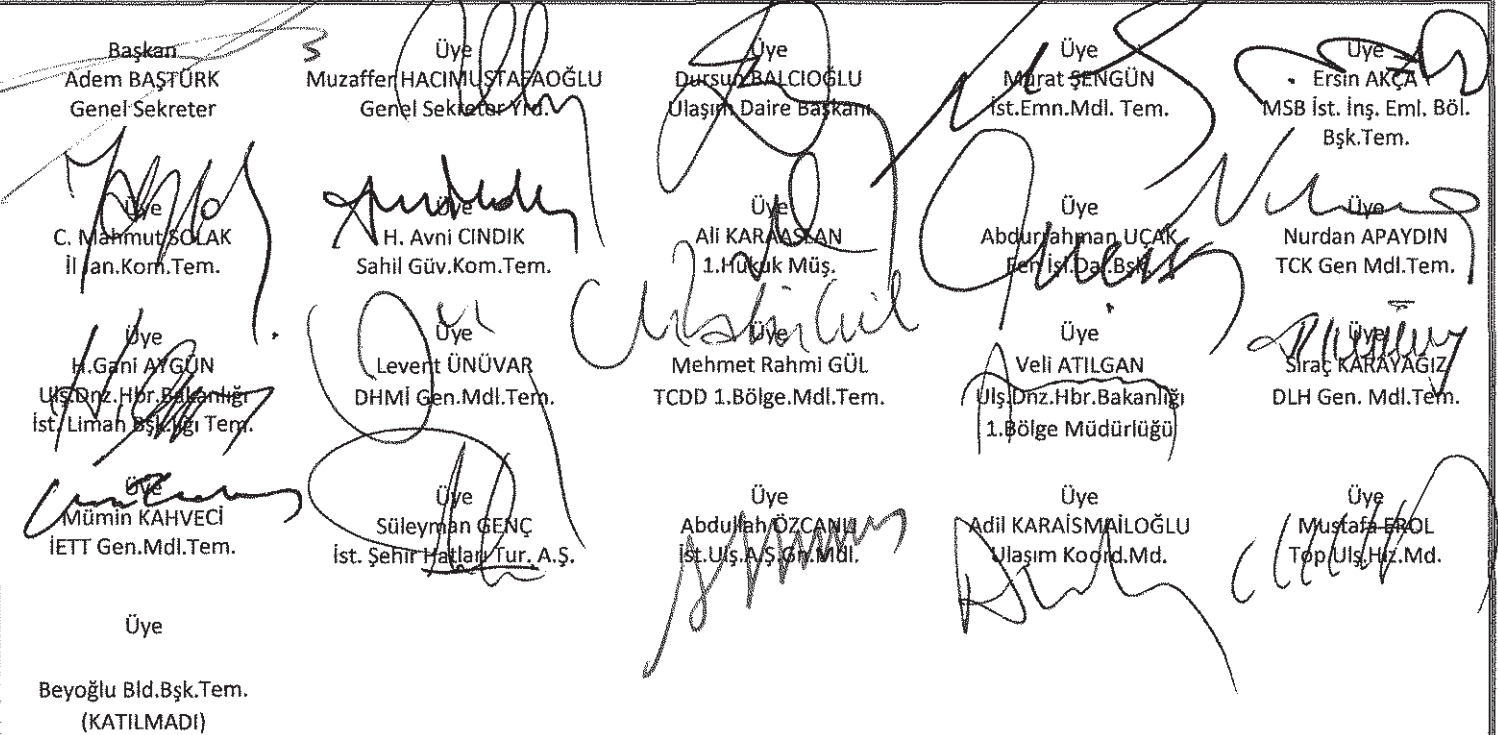 Başkan
Adem BAŞTÜRK
Genel Sekreter
Üye
Muzaffer HACIMUSTAFAOĞLU
Genel Sekreter Yrd.
Üye
Dursun BALCIOĞLU
Ulaşım Daire Başkanı
Üye
Murat ŞENGÜN
İst.Emn.Mdl. Tem.
Üye
Ersin AKÇA
MSB İst. İnş. Eml. Böl.
Bşk.Tem.
Üye
C. Mahmut SOLAK
İl Jan.Kom.Tem.
Üye
H. Avni CINDIK
Sahil Güv.Kom.Tem.
Üye
Ali KARAASLAN
1.Hukuk Müş.
Üye
Abdurrahman UÇAK
Fen İşl.Da.Bşk.
Üye
Nurdan APAYDIN
TCK Gen Mdl.Tem.
Üye
H.Gani AYGÜN
Ulş.Dnz.Hbr.Bakanlığı
İst. Liman Bşk.lığı Tem.
Üye
Levent ÜNÜVAR
DHMİ Gen.Mdl.Tem.
Üye
Mehmet Rahmi GÜL
TCDD 1.Bölge.Mdl.Tem.
Üye
Veli ATILGAN
Ulş.Dnz.Hbr.Bakanlığı
1.Bölge Müdürlüğü
Üye
Siraç KARAYAĞIZ
DLH Gen. Mdl.Tem.
Üye
Mümin KAHVECİ
İETT Gen.Mdl.Tem.
Üye
Süleyman GENÇ
İst. Şehir Hatları Tur. A.Ş.
Üye
Abdullah ÖZCANLI
İst.Ulş.A.Ş.Gn.Müd.
Üye
Adil KARAİSMAİLOĞLU
Ulaşım Koord.Md.
Üye
Mustafa EROL
Top.Ulş.Hiz.Md.
Üye
Beyoğlu Bld.Bşk.Tem.
(KATILMADI)